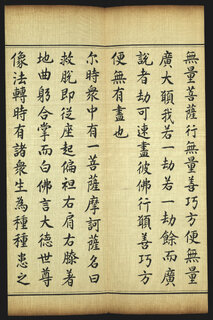 無量菩薩行無量善巧方便無量
廣大願我若一劫若一劫餘而廣
說者劫可速盡彼佛行願善巧方
便無有盡也
尔時衆中有一菩薩摩訶薩名曰
救脫即從座起偏袒右肩右膝著
地曲躬合掌而白佛言大德世尊
像法轉時有諸衆生為種種患之